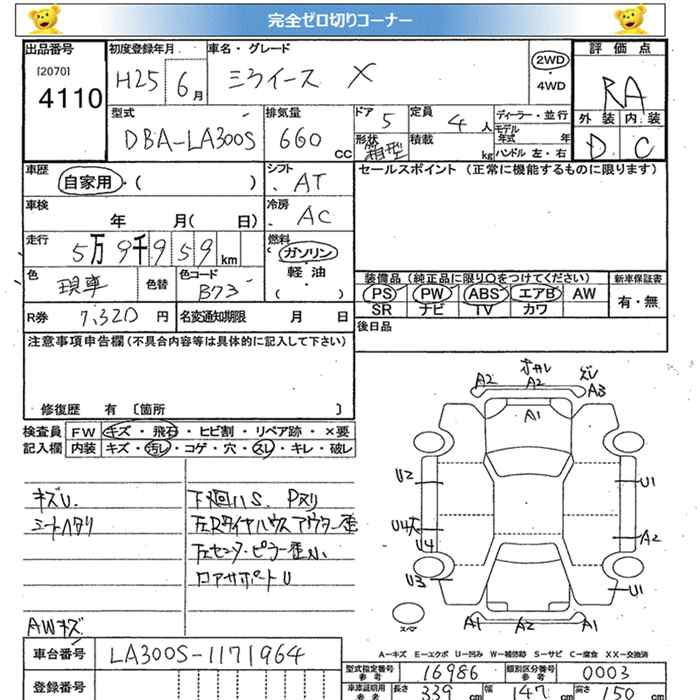 完全ゼロ切りコーナー
出品番号 初度登録年月 車名・グレード 2WD・4WD 評価点
[2070] 4110 H25 6月 ミライース X RA
型式 排気量 ドア 定員 ディーラー・並行 外装 内装
DBA-LA300S 660cc 5 4人 モデル年式 年 D C
形状 箱型 積載 kg ハンドル 左・右
車歴 自家用・( ) シフト AT セールスポイント (正常に機能するものに限ります)
車検 年 月( 日) 冷房 AC
走行 5万9千959km 燃料 (ガソリン 軽油 ( ・ )
色 現車 色替 色コード B73
装備品(純正品に限り○をつけてください) 新車保証書
PS PW ABS エアB AW 有・無
SR ナビ TV カワ
R券 7,320円 名変通知期限 月 日 後日品
注意事項申告欄(不具合内容等は具体的に記入して下さい)
修復歴 有〔箇所 〕
検査員 FW キズ・飛石・ヒビ割・リペア跡・×要
記入欄 内装 キズ・汚レ・コゲ・穴・スレ・キレ・破レ
キズU. 下廻りS. Pヌリ
シートヘタリ 左Rタイヤハウスアウター歪
左センターピラー歪小
ロアサポートU
AWキズ
A2 ホカレ A2 ズレ A3
A1
U2 U1
U4
U4 A2
U3 U1
A1 A2 A1
スペア
A−キズ E−エクボ U−凹み W−補修跡 S−サビ C−腐食 XX−交換済
車台番号 LA300S-1171964
型式指定番号 参考 16986 類別区分番号 参考 0003
登録番号
車庫証明用 参考 長さ 339cm 幅 147cm 高さ 150cm